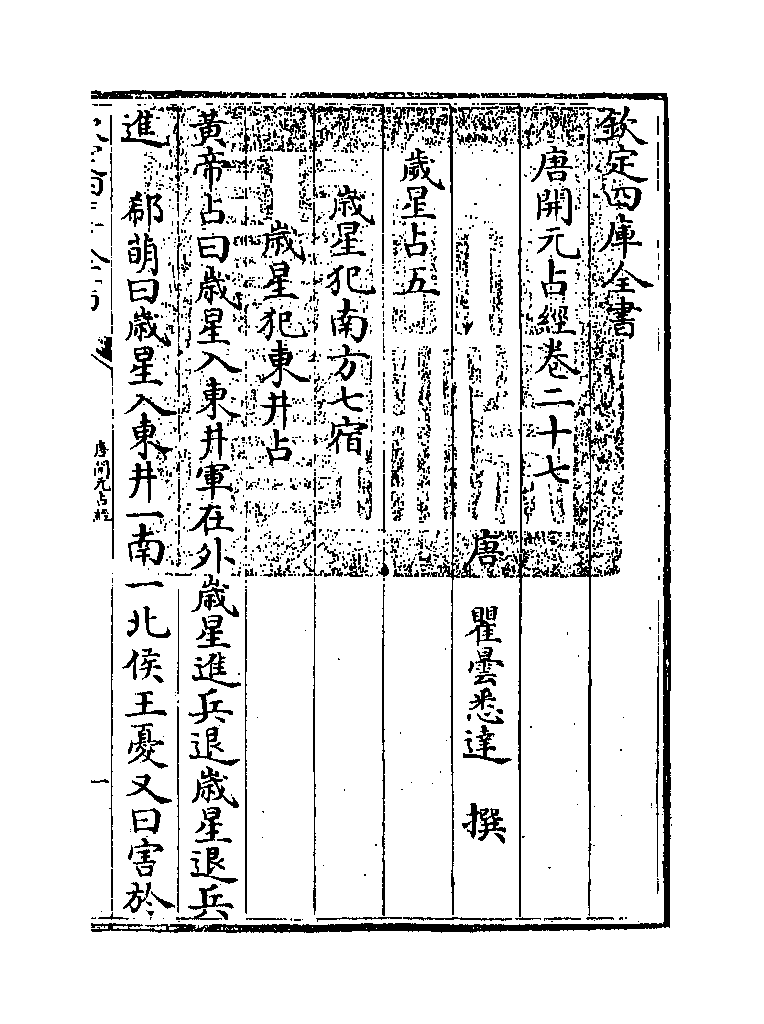 欽定四庫全書
唐開元占經卷二十七
唐 瞿曇悉達 撰
歲星占五
歲星犯南方七宿
歲星犯東井占
黃帝占曰歲星入東井軍在外歲星進兵退歲星退兵
進 郗萌曰歲星入東井一南一北侯王憂又曰害於
唐開元占經
一